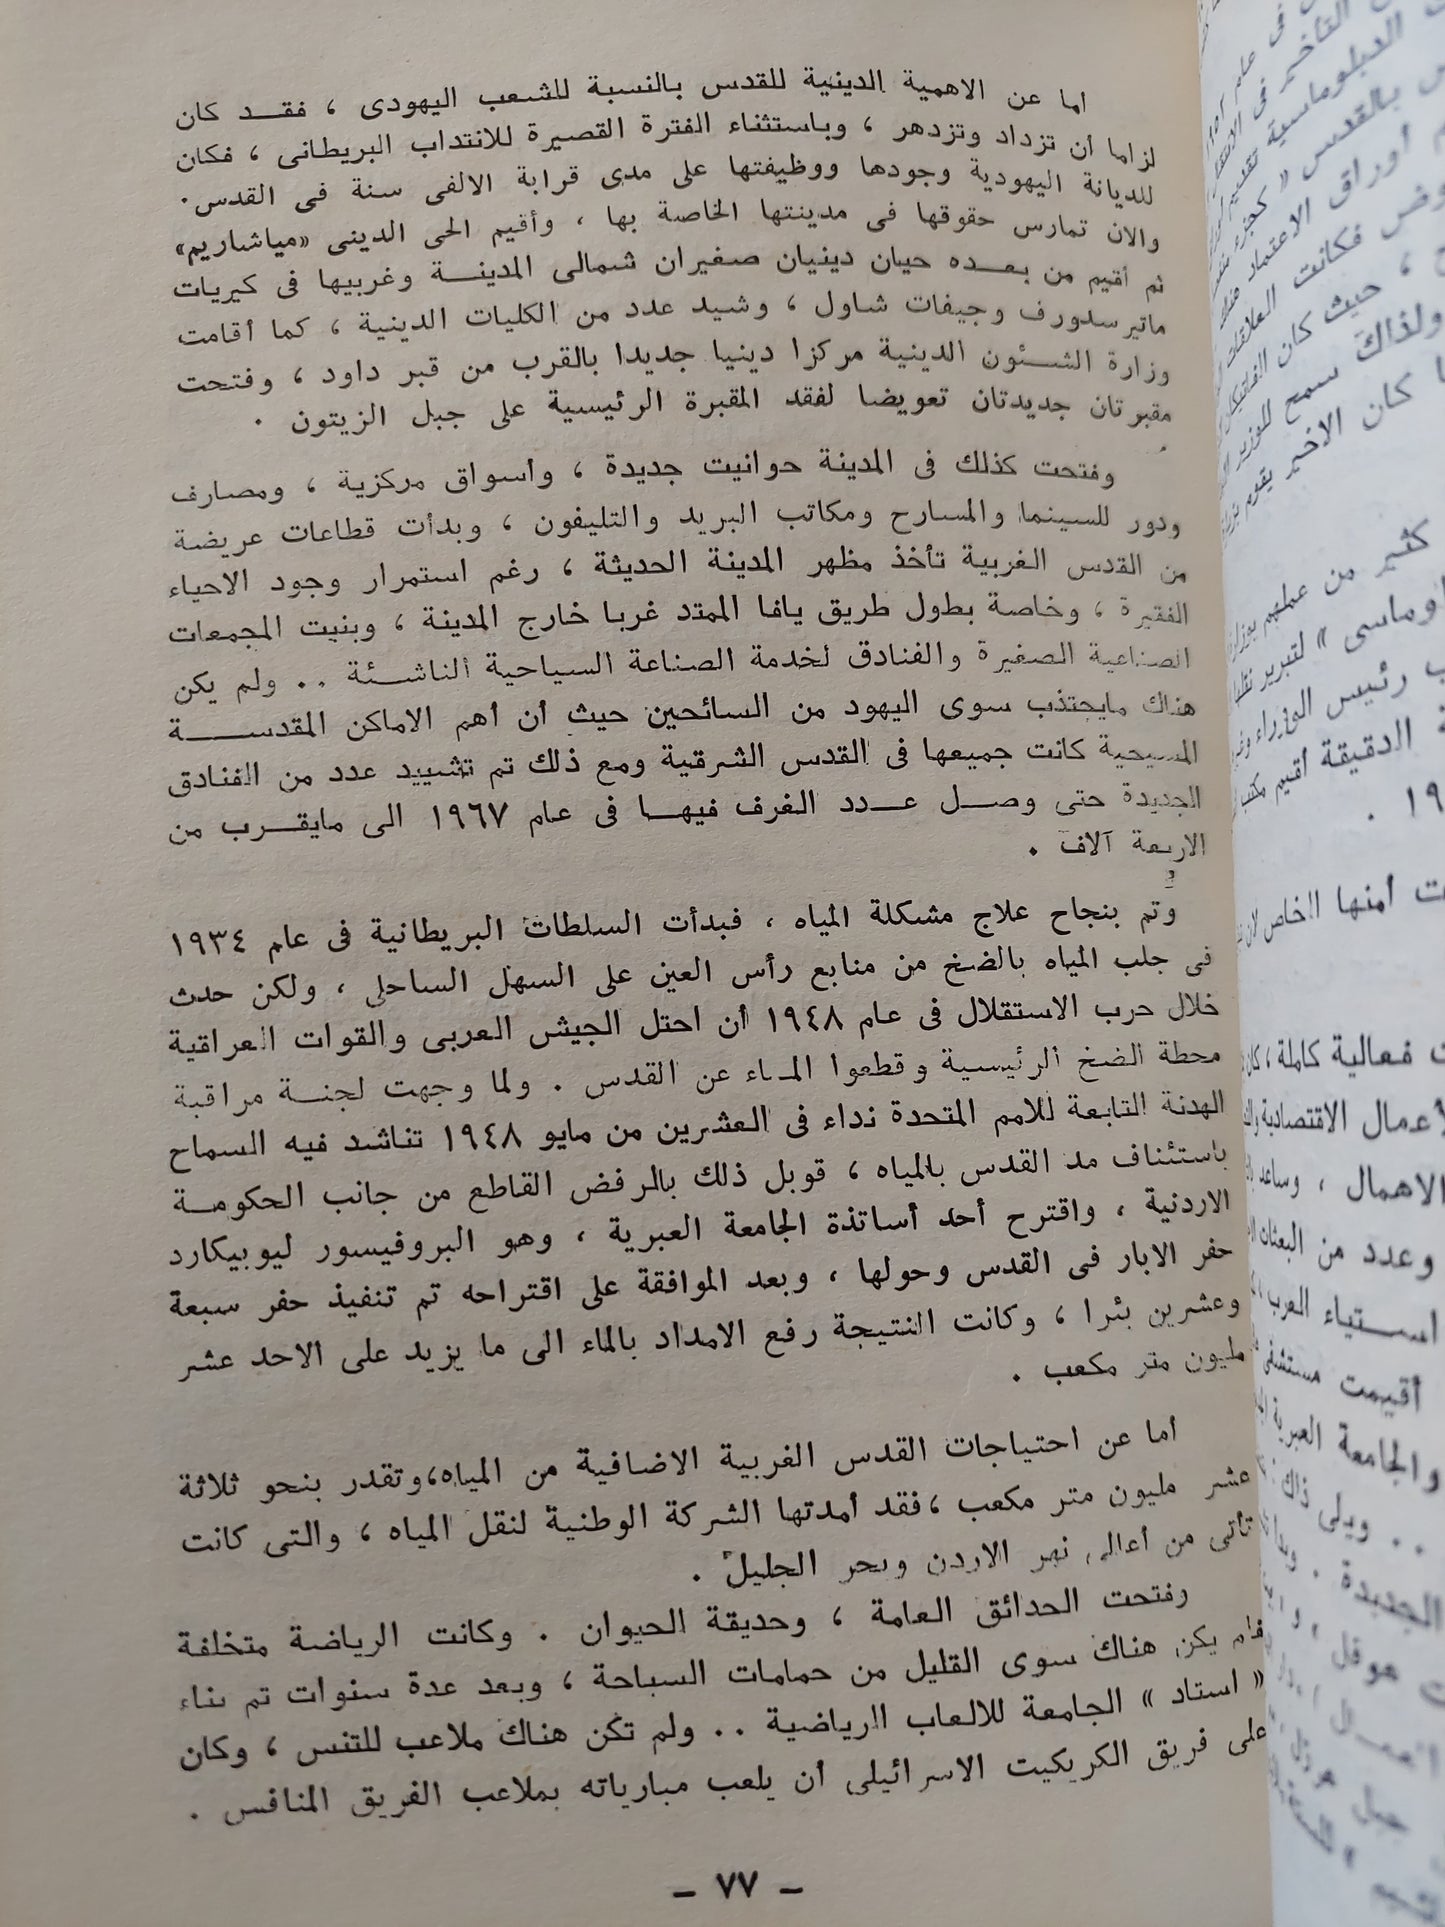 اما عن الاهمية الدينية للقدس بالنسبة للشعب اليهودى ، فقد كان
لزاما أن تزداد وتزدهر ، وباستثناء الفترة القصيرة للانتداب البريطانى ، فكان
للديانة اليهودية وجودها ووظيفتها على مدى قرابة الالفى سنة فى القدس.
والان تمارس حقوقها فى مدينتها الخاصة بها ، وأقيم الحى الدينى «مياشاريم»
ثم أقيم من بعده حيان دينيان صغيران شمالى المدينة وغربيها فى كيريات
ماتيرسدورف وجيفات شاول ، وشيد عدد من الكليات الدينية ، كما أقامت
وزارة الشئون الدينية مركزا دينيا جديدا بالقرب من قبر داود ، وفتحت
مقبرتان جديدتان تعويضا لفقد المقبرة الرئيسية على جبل الزيتون .
وفتحت كذلك فى المدينة حوانيت جديدة ، وأسواق مركزية ، ومصارف
ودور للسينما والمسارح ومكاتب البريد والتليفون ، وبدأت قطاعات عريضة
من القدس الغربية تأخذ مظهر المدينة الحديثة ، رغم استمرار وجود الاحياء
الفقيرة ، وخاصة بطول طريق يافا الممتد غربا خارج المدينة ، وبنيت المجمعات
الصناعية الصغيرة والفنادق لخدمة الصناعة السياحية الناشئة .. ولم يكن
هناك مايجتذب سوى اليهود من السائحين حيث أن أهم الاماكن المقدسة
المسيحية كانت جميعها فى القدس الشرقية ومع ذلك تم تشييد عدد من الفنادق
الجديدة حتى وصل عدد الغرف فيها فى عام ١٩٦٧ الى مايقرب من
الاربعة آلاف .
وتم بنجاح علاج مشكلة المياه ، فبدأت السلطات البريطانية فى عام ١٩٣٤
فى جلب المياه بالضخ من منابع رأس العين على السهل الساحلى ، ولكن حدث
خلال حرب الاستقلال فى عام ١٩٤٨ أن احتل الجيش العربى والقوات العراقية
محطة الضخ الرئيسية وقطعوا الماء عن القدس . ولما وجهت لجنة مراقبة
الهدنة التابعة للامم المتحدة نداء فى العشرين من مايو ١٩٤٨ تناشد فيه السماح
باستئناف مد القدس بالمياه ، قوبل ذلك بالرفض القاطع من جانب الحكومة
الاردنية ، واقترح أحد أساتذة الجامعة العبرية ، وهو البروفيسور ليوبيكارد
حفر الابار فى القدس وحولها ، وبعد الموافقة على اقتراحه تم تنفيذ حفر سبعة
وعشرين بئرا ، وكانت النتيجة رفع الامداد بالماء الى ما يزيد على الاحد عشر
مليون متر مكعب .
أما عن احتياجات القدس الغربية الاضافية من المياه،وتقدر بنحو ثلاثة
عشر مليون متر مكعب ،فقد أمدتها الشركة الوطنية لنقل المياه ، والتى كانت
تأتى من أعالى نهر الاردن وبحر الجليل .
وفتحت الحدائق العامة ، وحديقة الحيوان . وكانت الرياضة متخلفة
فلم يكن هناك سوى القليل من حمامات السباحة ، وبعد عدة سنوات تم بناء
« استاد » الجامعة للالعاب الرياضية .. ولم تكن هناك ملاعب للتنس ، وكان
على فريق الكريكيت الاسرائيلى أن يلعب مبارياته بملاعب الفريق المنافس .
— ٧٧ —